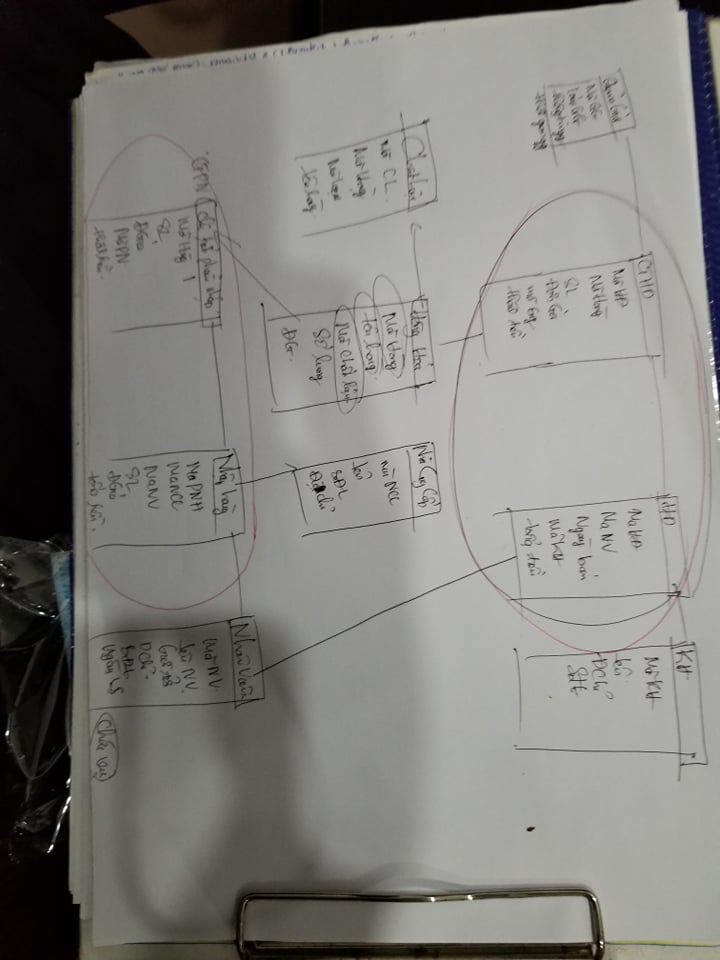 CTHD
Mã HĐ
Mã Hàng
SL
Đơn Giá
thành tiền
HD
Ma HĐ
Ma NV
Ngày bán
Mã KH
tổng tiền
KH
Mã KH
tên
Đ Chỉ
Sđt
Giảm Giá
Mã GG
Loại GG
Chất liệu
Mã CL
Mã Hàng
tên hàng
Hàng Hoá
Mã Hàng
tên hàng
Mã Chất liệu
Số lượng
ĐG
Nhà Cung Cấp
Mã NCC
tên
SĐT
Địa chỉ
CTPN
chi tiết phiếu nhập
Mã Hàng
SL
ĐGia
Mã PN
thành tiền
Nhập hàng
Ma PNH
Ma NCC
Ma NV
SL
ĐGiá
tổng tiền
Nhân Viên
Mã NV
tên NV
Giới tính
Đ Chỉ
SĐT
Ngày LS
Chức vụ